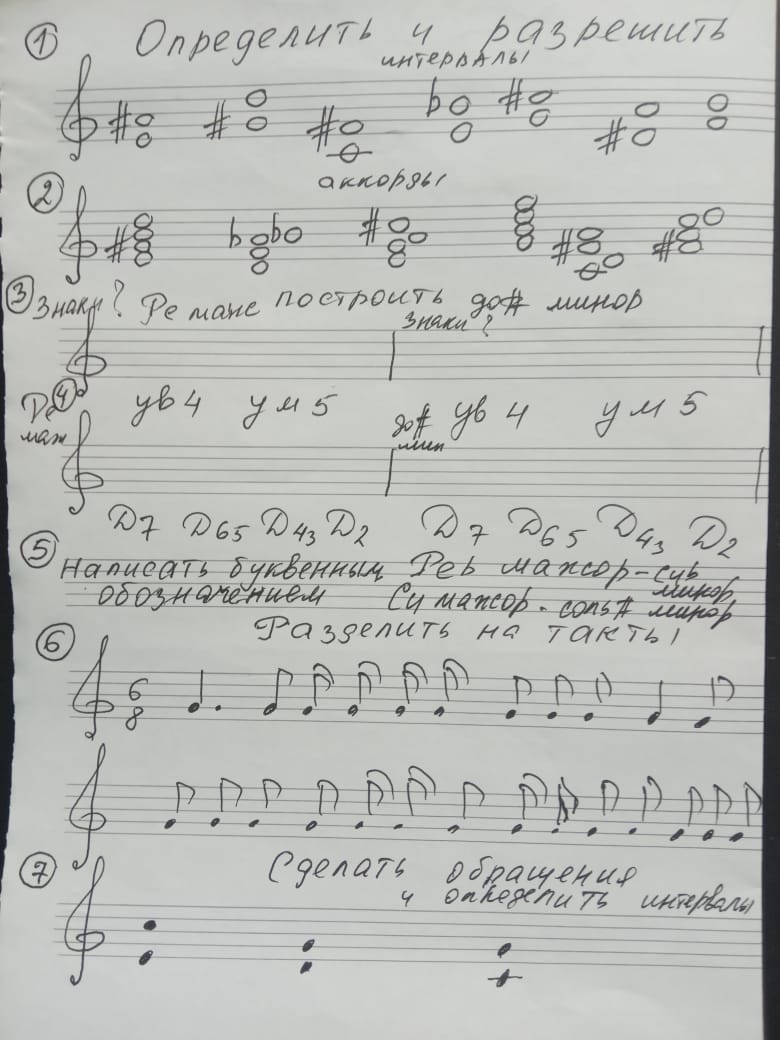 ① Определить и разрешить
интервалы
② аккорды
③ Знаки? Ре маж построить до# минор
Знаки?
④ Ре маж ув4 ум5 до# мин ув4 ум5
Д7 Д65 Д43 Д2 Д7 Д65 Д43 Д2
⑤ Написать буквенным Реь мажор-сиь минор
обозначением Си мажор. соль# минор
⑥ Разделить на такты
6
8
⑦ Сделать обращения
и определить интервалы